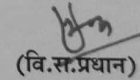 (वि.स.प्रधान)